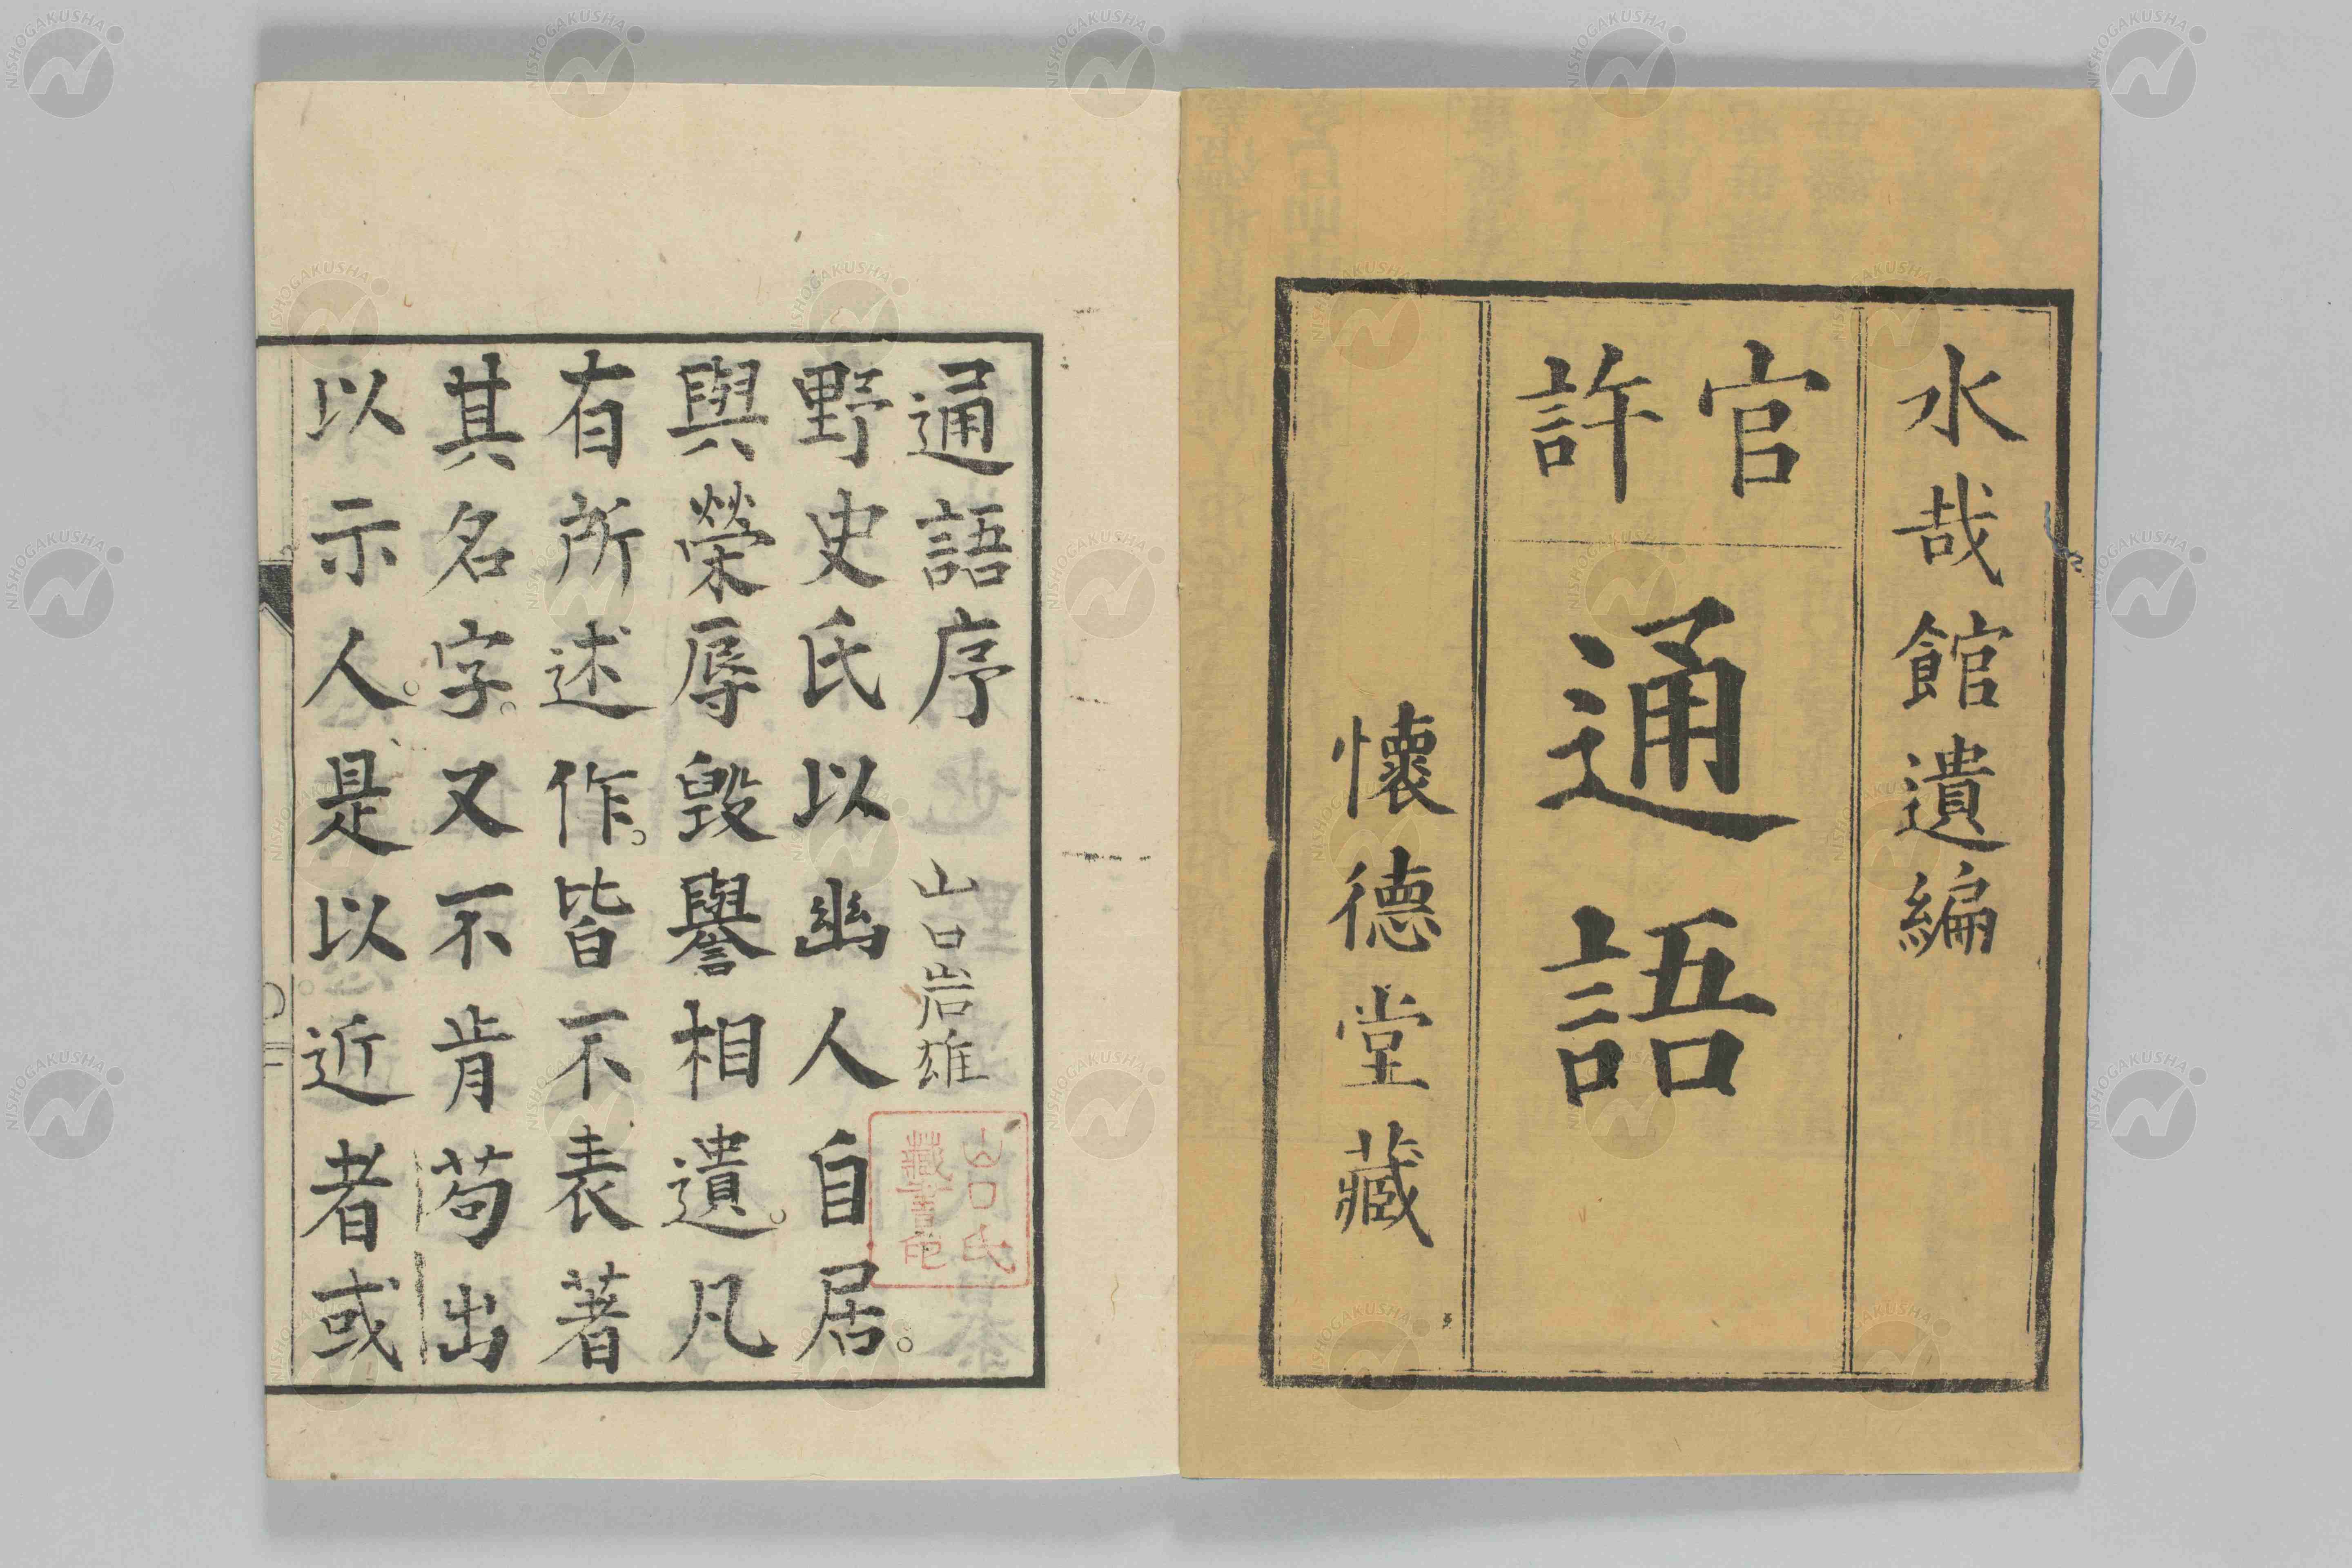 水哉館遺編
官許
通語
懷德堂藏
通語序
山口岩雄
山口氏
藏書印
野史氏以幽人自居。
與榮辱毀譽相遺。凡
有所述作。皆不表著
其名字。又不肯苟出
以示人。是以近者或
NISHOGAKUSHA